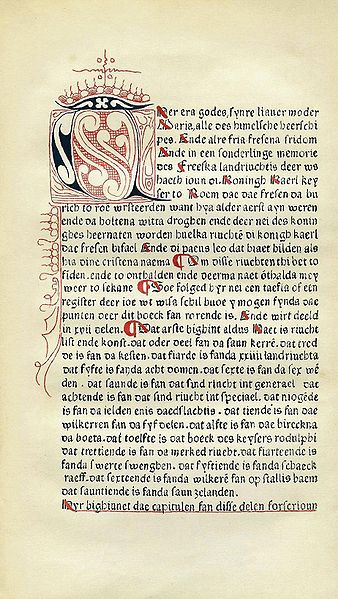 Ter era godes, synre liauer moder
Maria, alle des himelsche heerschi
pes. Ende alre fria fresena fridom
Ende in een sonderlinge memorie
des Freeska landriuchtis deer ws
haeth ioun di. Koningh Kaerl key
ser to Room dae dae fresen da bu
rich to roe wrsteerden want hya alder aerst ayn weren
ende da boltena witta droghen ende deer nei des konin
ghes heernaten worden huelka riuchtē di konigh kaerl
dae fresen bifael Ende di paeus leo dat biaet bilden als
hia dine cristena naema Om disse riuchten thi bet to
fiden. ende to onthalden ende deerma naet óthalda mey
weer to sekane Soe folged hyr nei een taefla of een
register deer ioe wt wisa schil huoe y mogen fynda dae
punten deer dit boeck fan rorende is. Ende wirt deeld
in xvii delen. Dat arste bighint aldus Haet is riucht
list ende konst. dat oder deel fan da saun kerrē. dat tred
de is fan da kesten. dat fiarde is fanda xxiiii landriuchta
dat fyfte is fanda acht domen. dat sexte is fan da sex wē
den. dat saunde is fan dat sind riucht int generael dat
achtende is fan dat sind riucht int speciael. dat niogēde
is fan da ielden enis daedslachtis. dat tiende is fan dae
wilkerren fan da fyf delen. dat alfte is fan dae bireckna
da boeta. dat toelfte is dat boeck des keysers rodulphi
dat trettiende is fan da merked riucht. dat fiarteende is
fanda swerte swenghen. dat fyftiende is fanda schaeck
raeff. dat sexteende is fanda wilkerē fan op stallis baem
dat sauntiende is fanda saun zelanden.
Hyr bighinnet dae capitulen fan disse delen forscrioun